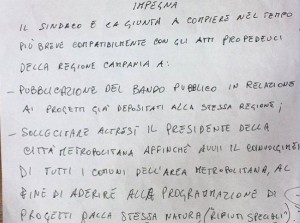 IMPEGNA
IL SINDACO E LA GIUNTA A COMPIERE NEL TEMPO
PIÙ BREVE COMPATIBILMENTE CON GLI ATTI PROPEDEUCI
DELLA REGIONE CAMPANIA A:
- PUBBLICAZIONE DEL BANDO PUBBLICO IN RELAZIONE
AI PROGETTI GIÀ DEPOSITATI ALLA STESSA REGIONE;
- SOLLECITARE ALTRESÌ IL PRESIDENTE DELLA
CITTÀ METROPOLITANA AFFINCHÈ AVVII IL COINVOLGIMENTO
DI TUTTI I COMUNI DELL'AREA METROPOLITANA, AL
FINE DI ADERIRE ALLA PROGRAMMAZIONE DI
PROGETTI DALLA STESSA NATURA (RIFIUTI SPECIALI)